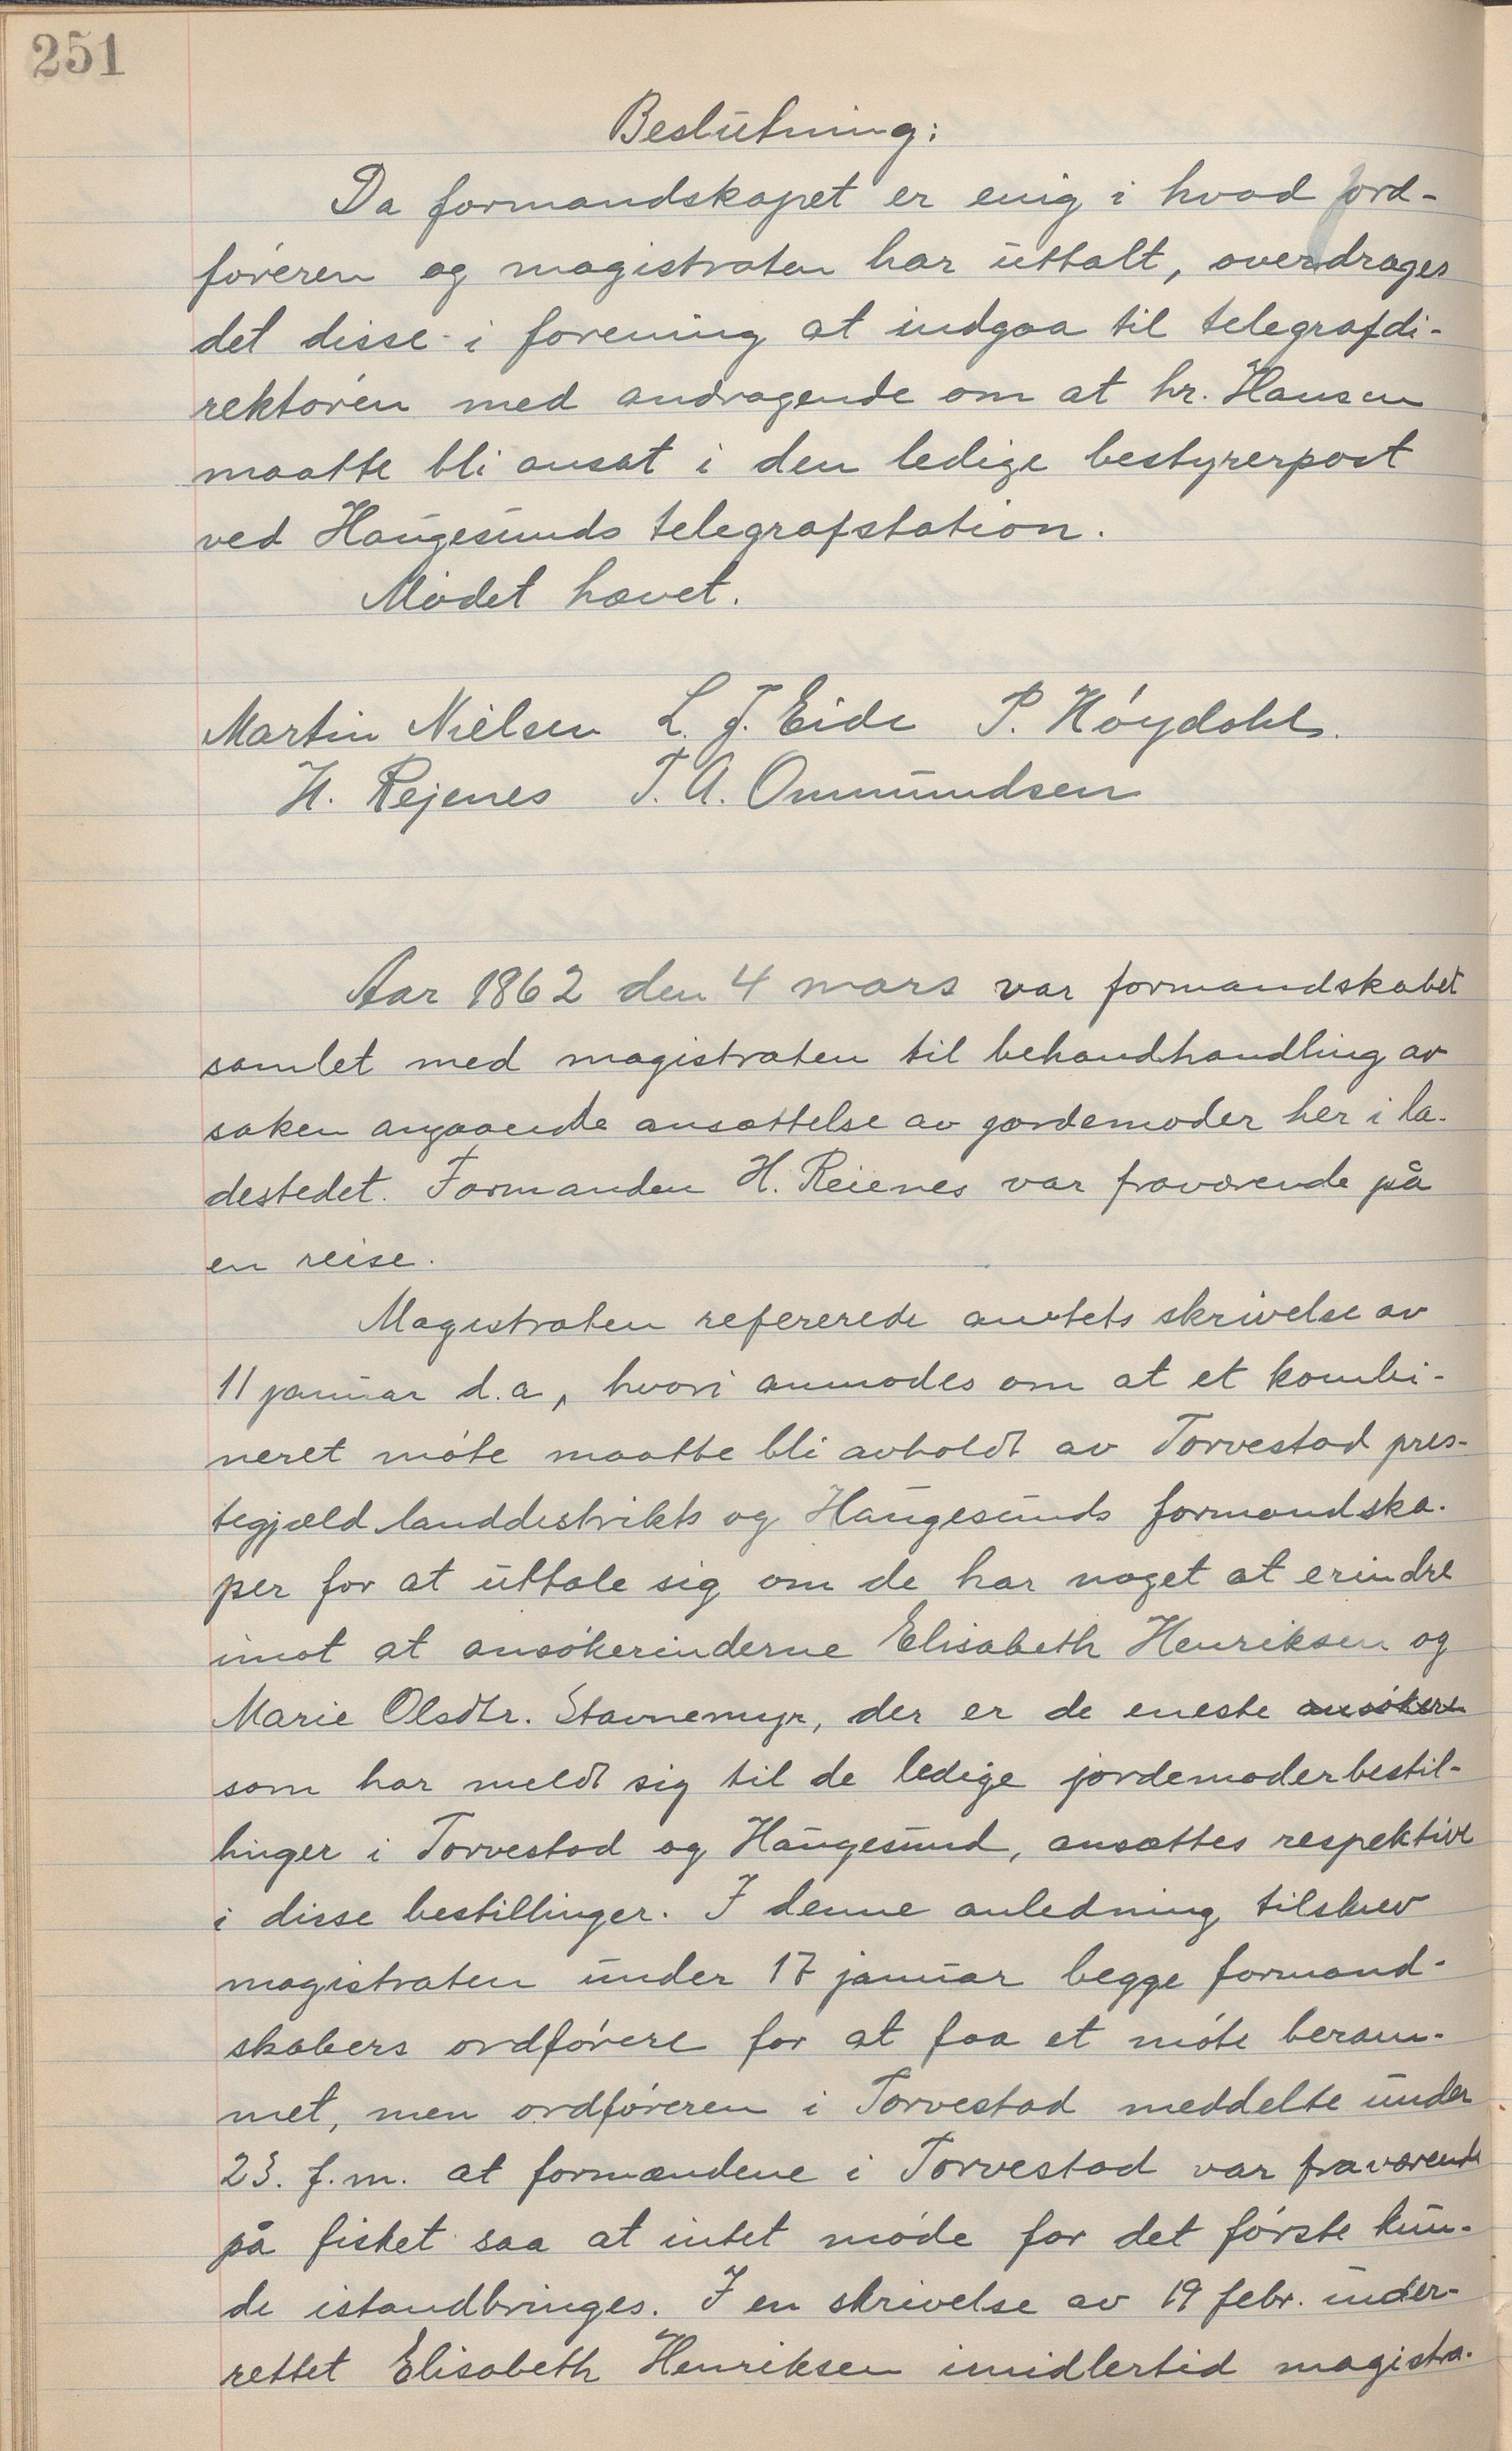 251
Beslutning:
Da formandskapet er enig i hvad ord-
føreren og magistraten har uttalt, overdrages
det disse i forening at indgaa til telegrafdi-
rektøren med andragende om at hr. Hansen
maatte bli ansat i den ledige bestyrerpost
ved Haugesunds telegrafstation.
Mødet hævet.
Martin Nielsen L. T. Eide P. Høydahl.
H. Rejenes T. A. Ommundsen
Aar 1862 den 4 mars var formandskabet
samlet med magistraten til behandhandling av
saken angaaende ansættelse av gordemoder her i la-
destedet. Formanden H. Reienes var fraværende på
en reise.
Magistraten refererede amtets skrivelse av
11 januar d.a, hvori anmodes om at et kombi-
neret møte maatte bli avholdt av Torvestad pres-
tegjæld landdistrikts og Haugesunds formandska-
per for at uttale sig om de har noget at erindre
imot at ansøkerinderne Elisabeth Henriksen og
Marie Olsdtr. Stavnemyr, der er de eneste ansøkere
som har meldt sig til de ledige jordemoderbestil-
linger i Torvestad og Haugesund, ansættes respektive
i disse bestillinger. I denne anledning tilskrev
magistraten under 17 januar begge formand-
skabers ordførere for at faa et møte beram-
met, men ordføreren i Torvestad meddelte under
23. f.m. at formændene i Torvestad var fraværende
på fisket saa at intet møde for det første kun-
de istandbringes. I en skrivelse av 19 febr. under-
rettet Elisabeth Henriksen imidlertid magistra-